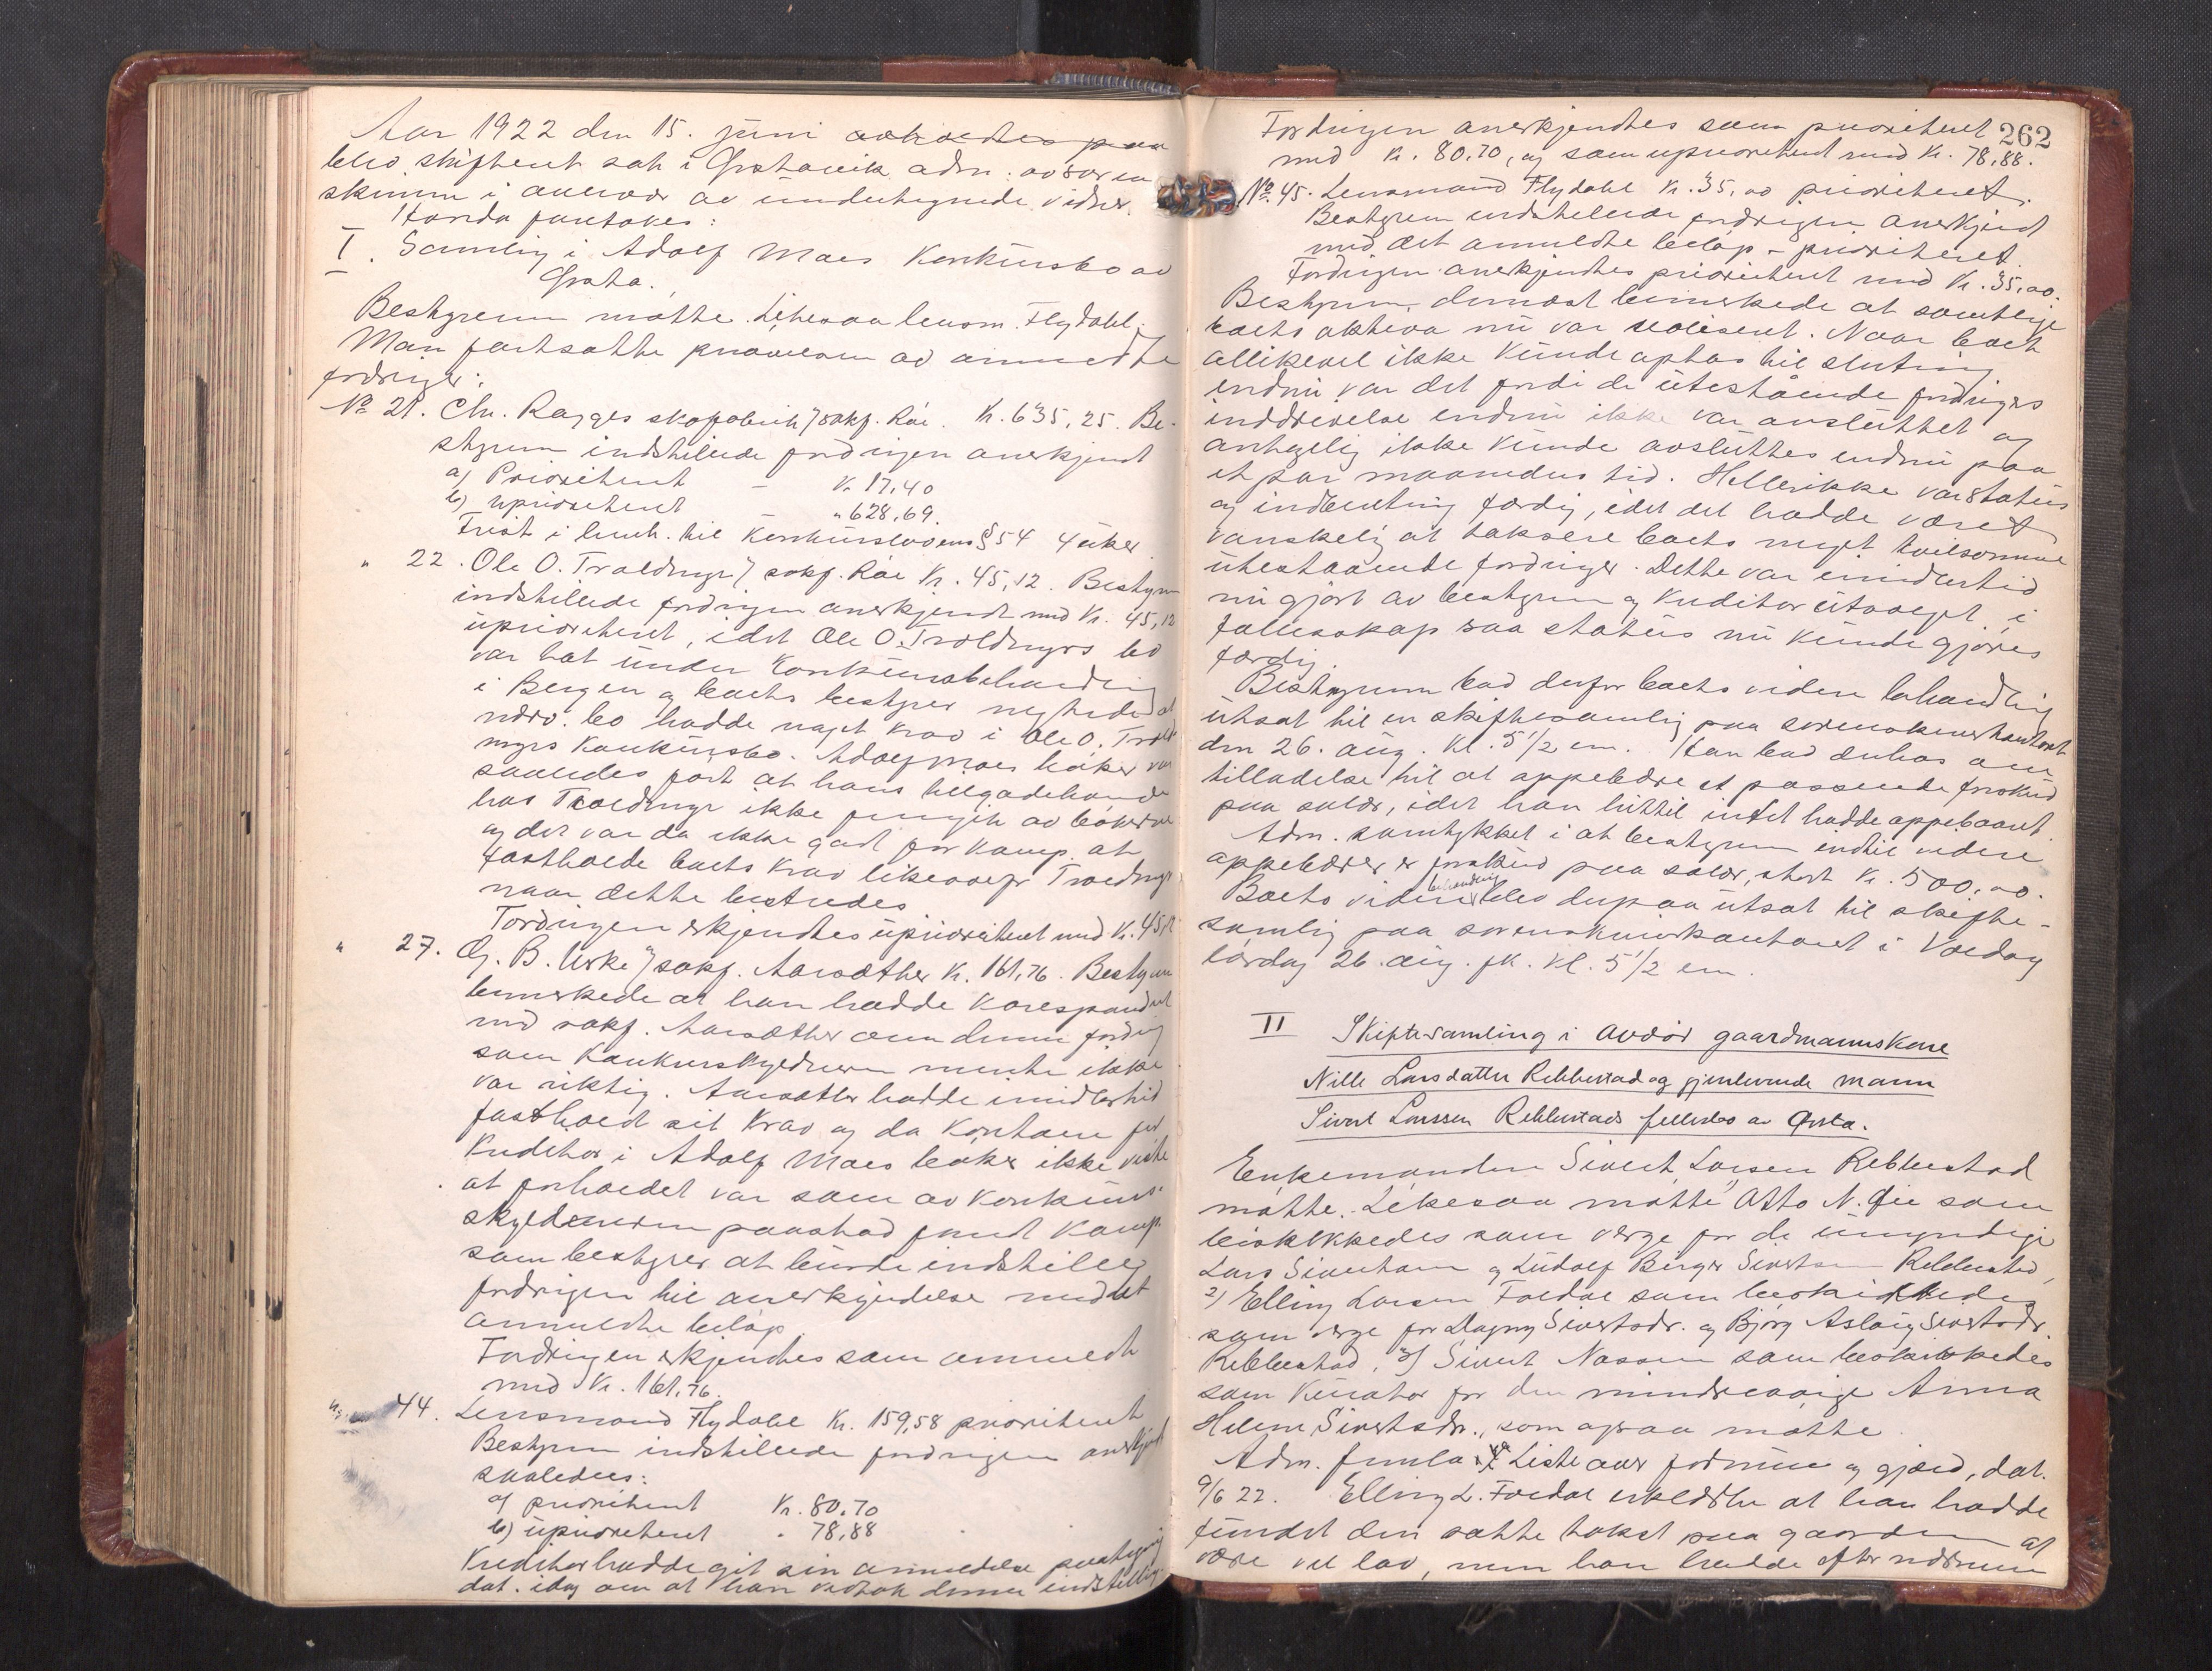 Aar 1922 den 15. juni avholdtes paa
blev skifteret sat i Ørstavik adm: av soren
skriveren i overvær av undertegnede vidner.
Herda foretokes:
I. Samling i Adolf Moes Konkursbo av
Ørsta.
Bestyreren møtte. Likesaa lensm. Flydahl.
Man fortsatte prøvelsen av anmeldte
fordringer:
No 21. Chr. Ragges skofabrik v/ sakf. Kr. 635,25. Be-
styreren indstillede fordringen anerkjendt
a) Prioritert – Kr. 17,40
b) uprioritert – " 628,69.
Frist i henh. til Konkurslovens § 54 4 uker
" 22. Ole O. Troldmyr v/ sakf. Kr. 45,12. Bestyreren
indstillede fordringen anerkjendt med Kr. 45,12
uprioritert, idet Ole O. Troldmyrs bo
var tat under Konkursbehandling
i Bergen og boets bestyrer negtede at
nærv. bo hadde noget krav i Ole O. Trold
myrs Konkursbo. Adolf Moes bøker var
saaledes ført at hans tilgodehavende
hos Troldmyr ikke fremgik av bøkerne
og det var da ikke godt for Komp. at
fastholde boets krav likeovefor Troldmyr
naar dette bestredes
Fordringen erkjendtes uprioritert med Kr. 45,12
" 27. G. B. Urke v/ sakf. Aarsæther Kr. 161,76. Bestyreren
bemerkede at han hadde korespondert
med sakf. Aarsæther om denne fordring
som Konkursskyldneren mente ikke
var riktig. Aarsæther hadde imidlertid
fastholdt sit krav og da Kontoen for
Kreditor i Adolf Moes bøker ikke viste
at forholdet var som av Konkurs-
skyldneren paastod fandt Komp.
som bestyrer at burde indstille
fordringen til anerkjendelse med det
anmeldte beløp
Fordringen erkjendtes som anmeldt
med Kr. 161,76.
44. Lensmand Flydahl Kr. 159,58 prioritert
Bestyreren indstillede fordringen anerkjendt
saaledes:
a) prioritert Kr. 80,70
b) uprioritert " 78,88
Kreditor hadde git sin anmeldelse paategning
dat. idag om at han vedtok denne indstilling.
262
Fordringen anerkjendtes som prioritert
med Kr. 80,70, og som uprioritert med Kr. 78,88.
No 45. Lensmand Flydahl Kr. 35,00 prioritert.
Bestyreren indstillede fordringen anerkjendt
med det anmeldte beløp – prioritert.
Fordringen anerkjendtes prioritert med Kr. 35,00.
Bestyreren dernæst bemerkede at samtlige
boets aktiva nu var realisert. Naar boet
allikevel ikke kunde optas til slutning
endnu var det fordi de utestående fordringers
inddrivelse endnu ikke var avsluttet og
antagelig ikke kunde avsluttes endnu paa
et par maaneders tid. Heller ikke var status
og indberetning færdig, idet det hadde været
vanskelig at taksere boets meget tvilsomme
utestaaende fordringer. Dette var imidlertid
nu gjort av bestyreren og kreditorutvalget i
fællesskap saa status nu kunde gjøres
færdig.
Bestyreren bad derfor boets videre behandling
utsat til en skiftesamling paa sorenskriverkontoret
den 26. aug. kl. 5 1/2 em. Han bad derhos om
tilladelse til at oppebære et passende forskud
paa salær, idet han hittil intet hadde oppebaaret.
Adm. samtykket i at bestyreren indtil videre
oppebærer et forskud paa salær, stort Kr. 500,00.
Boets videre behandling blev derpaa utsat til skifte-
samling paa sorenskriverkontoret i Volda
lørdag 26. aug. fk. kl. 5 1/2 em.
II Skiftesamling i avdød gaardmannskone
Nille Larsdatter Rebbestad og gjenlevende mann
Sivert Larssen Rebbestads fellesbo av Ørsta.
Enkemanden Sivert Larsen Rebbestad
møtte. Likesaa møtte Otto N. Lie som
beskikkedes som verge for de umyndige
Lars Sivertsen og Ludolf Birger Sivertsen Rebbestad,
2) Elling Larsen Foldal som beskikkedes
som verge for Dagny Sivertsdr. og Bjørg Aslaug Sivertsdr.
Rebbestad, 3) Sivert Nossen som beskikkedes
som kurator for den mindreaarige Anna
Helene Sivertsdr., som ogsaa møtte.
Adm. fremla Liste over formue og gjæld, dat.
9/6 22. Elling L. Foldal erklærte at han hadde
fundet den satte takst paa gaarden at
være vel lav, men han hadde efter nærmere